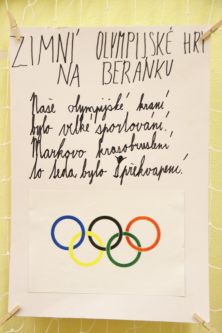 ZIMNÍ OLYMPIJSKÉ HRY
NA BERÁNKU
Naše olympijské hraní
bylo velké sportování.
Markovo krasobruslení
to teda bylo překvapení.